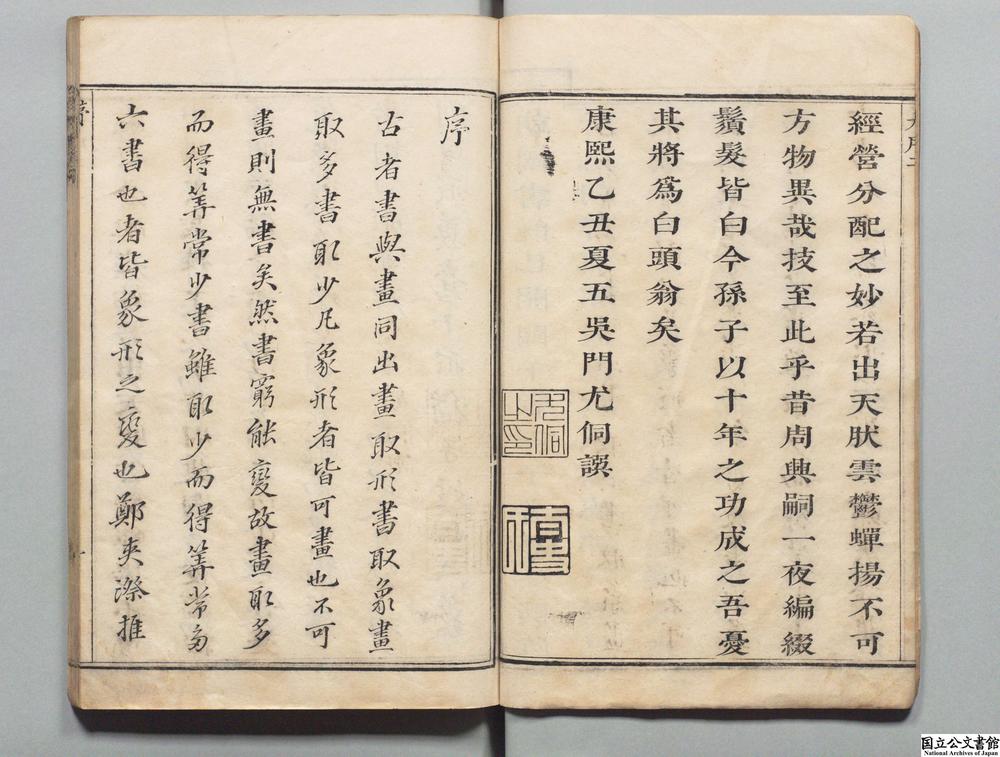 經營分配之妙若出天肰雲鬱蟬揚不可
方物異哉技至此乎昔周興嗣一夜編綴
鬚髮皆白今孫子以十年之功成之吾憂
其將爲白頭翁矣
康熙乙丑夏五吳門尤侗譔
尤侗之印
序
古者書與畫同出畫取形書取象畫
取多書取少凡象形者皆可畫也不可
畫則無書矣然書窮能變故畫取多
而得筭常少書雖取少而得筭常多
六書也者皆象形之變也鄭夾漈推
序
一
国立公文書館
National Archives of Japan